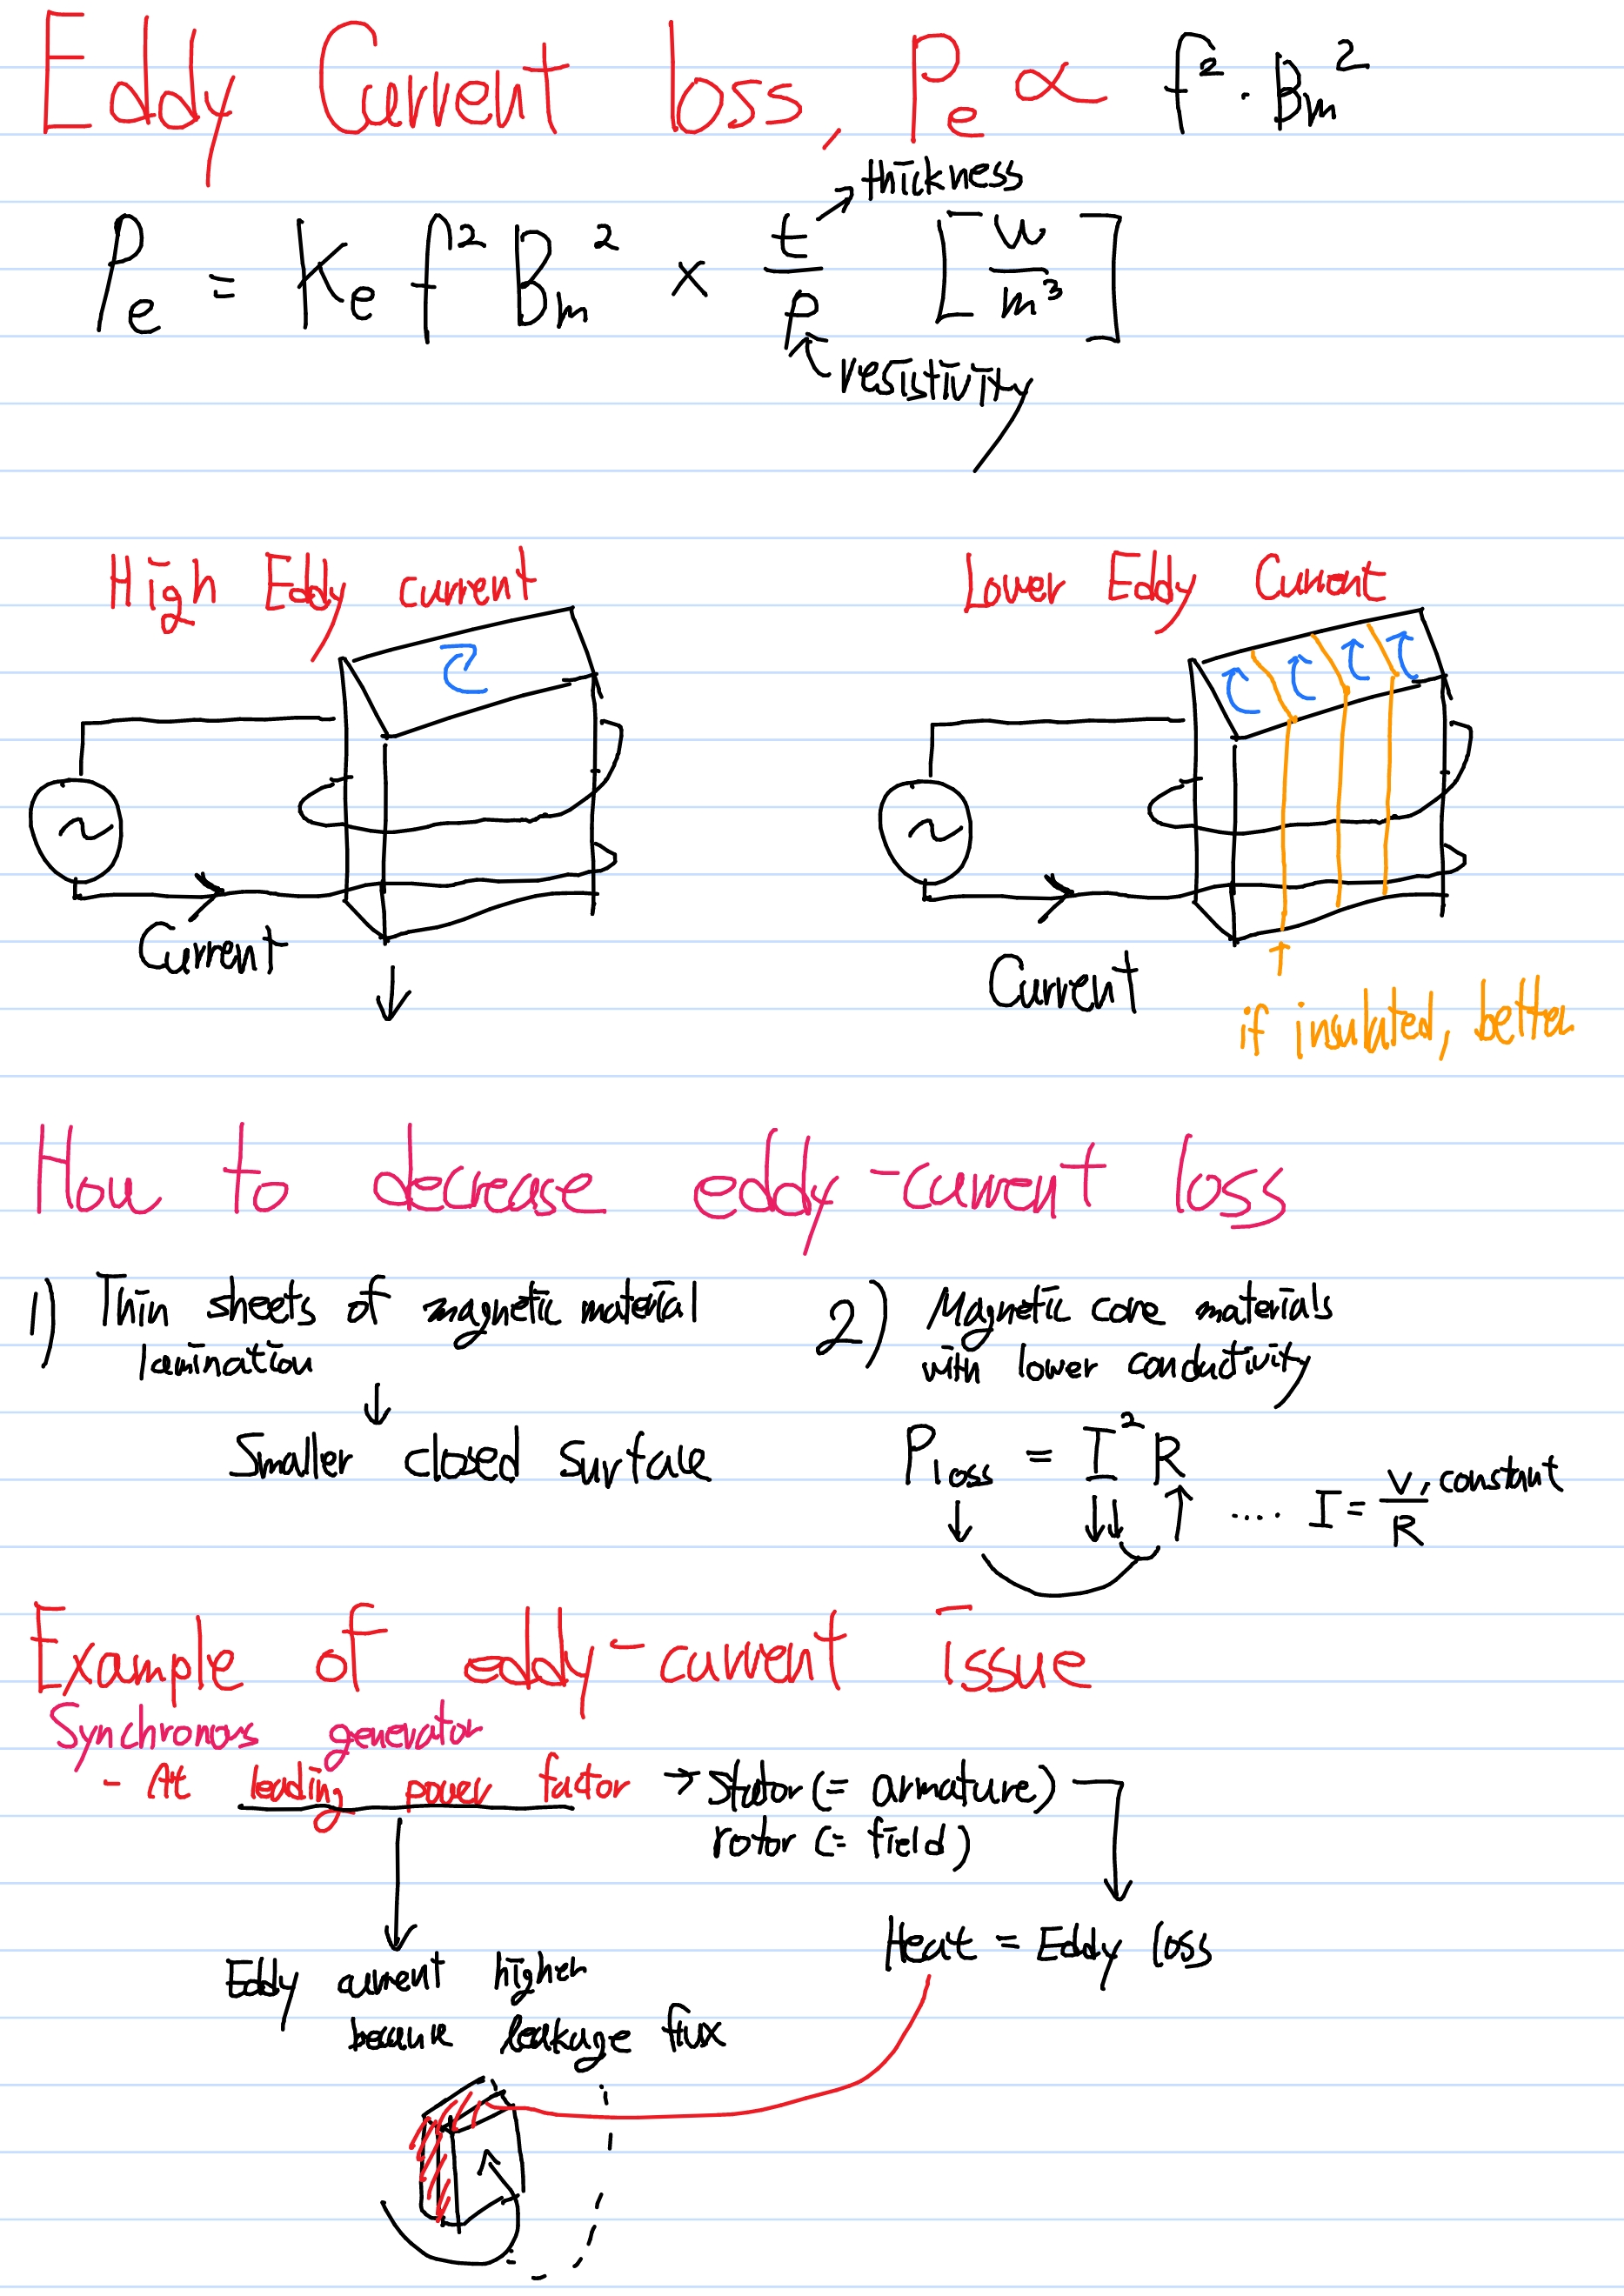 Eddy Current loss, Pe ∝ f² · Bm²
thickness
Pe = Ke f² Bm² × t/ρ [W/m³]
resistivity
High Eddy current
Lower Eddy Current
~
~
Current
Current
if insulated, better
How to decrease eddy-current loss
1) Thin sheets of magnetic material
lamination
Smaller closed surface
2) Magnetic core materials
with lower conductivity
Ploss = I²R
.... I = V, constant / R
Example of eddy-current issue
Synchronous generator
- At leading power factor → Stator (= armature)
rotor (= field)
Heat = Eddy loss
Eddy current higher
because leakage flux